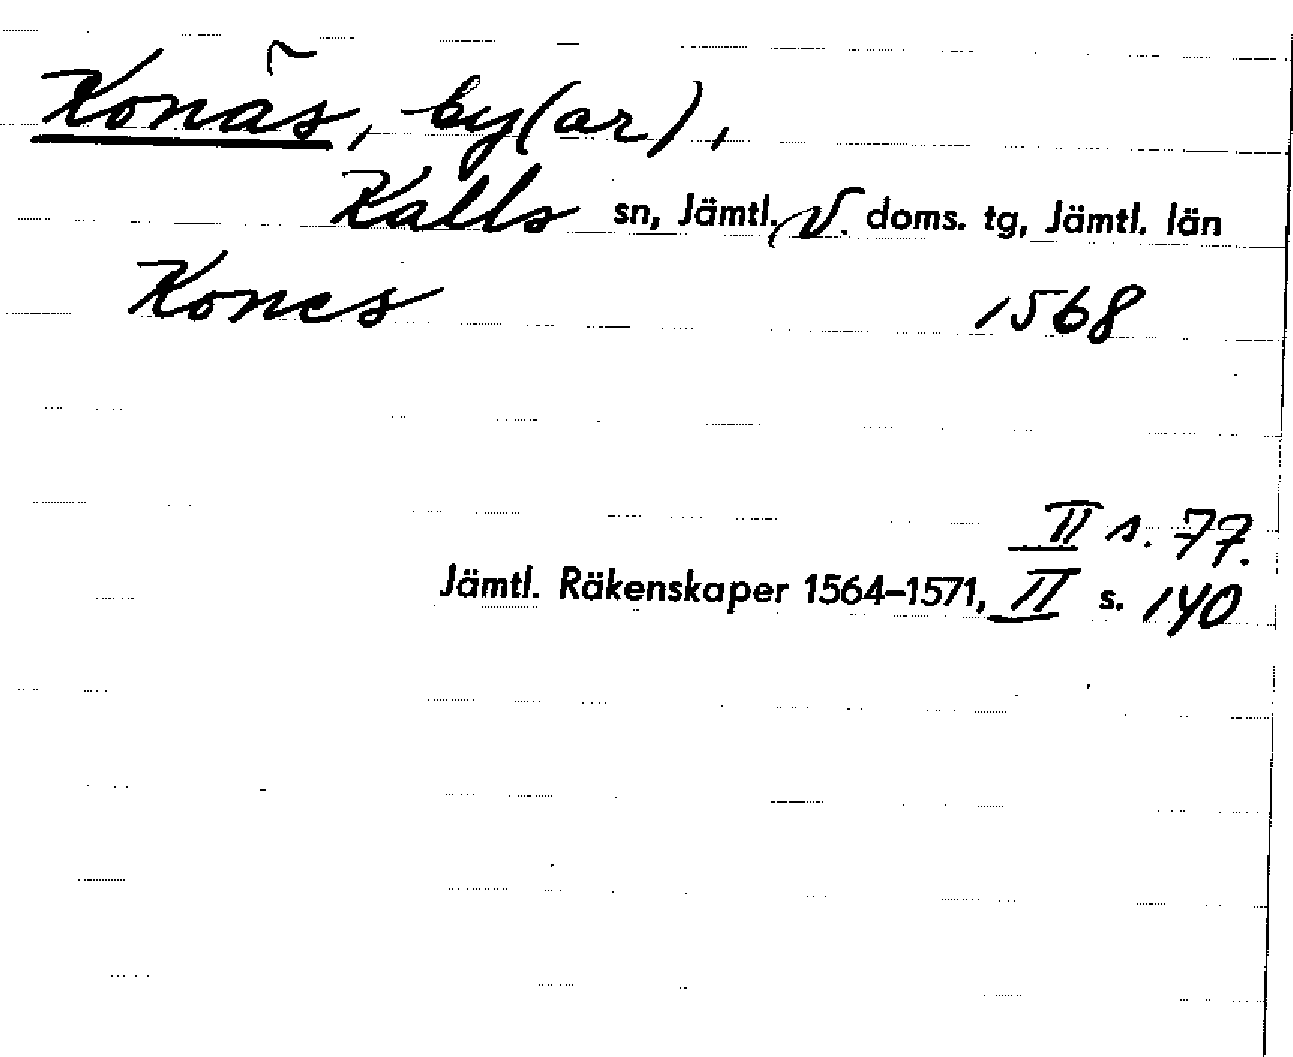 Konäs, by(ar),
Kalls sn, Jämtl. V. doms. tg, Jämtl. län
Kones 1568
II s. 77.
Jämtl. Räkenskaper 1564–1571, II s. 140